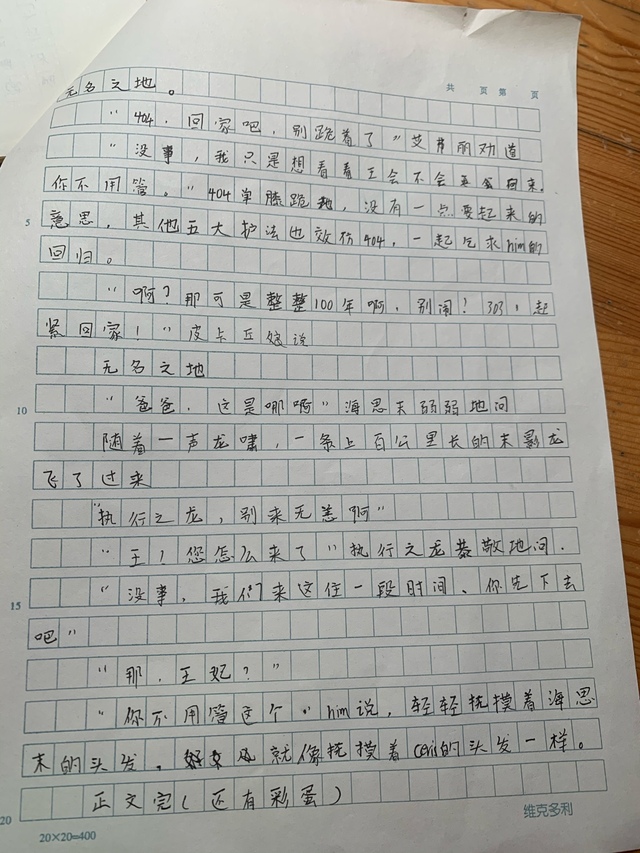 共 页 第 页
无名之地。
“404，回家吧，别跪着了”艾艿丽劝道
“没事，我只是想看看王会不会再回来，
你不用管。”404单膝跪地，没有一点要起来的
5 意思，其他五大护法也效仿404，一起乞求him的
回归。
“啊？那可是整整100年啊，别闹！303，起
紧回家！”皮卡丘娘说
无名之地
10 “爸爸，这是哪啊”海思末弱弱地问
随着一声龙啸，一条上百公里长的末影龙
飞了过来
“执行之龙，别来无恙啊”
“王！您怎么来了”执行之龙恭敬地问．
15 “没事，我们来这住一段时间，你先下去
吧”
“那，王妃？”
“你不用管这个”him说，轻轻抚摸着海思
末的头发，就像抚摸着ceris的头发一样。
20 正文完（还有彩蛋）
20×20=400 维克多利